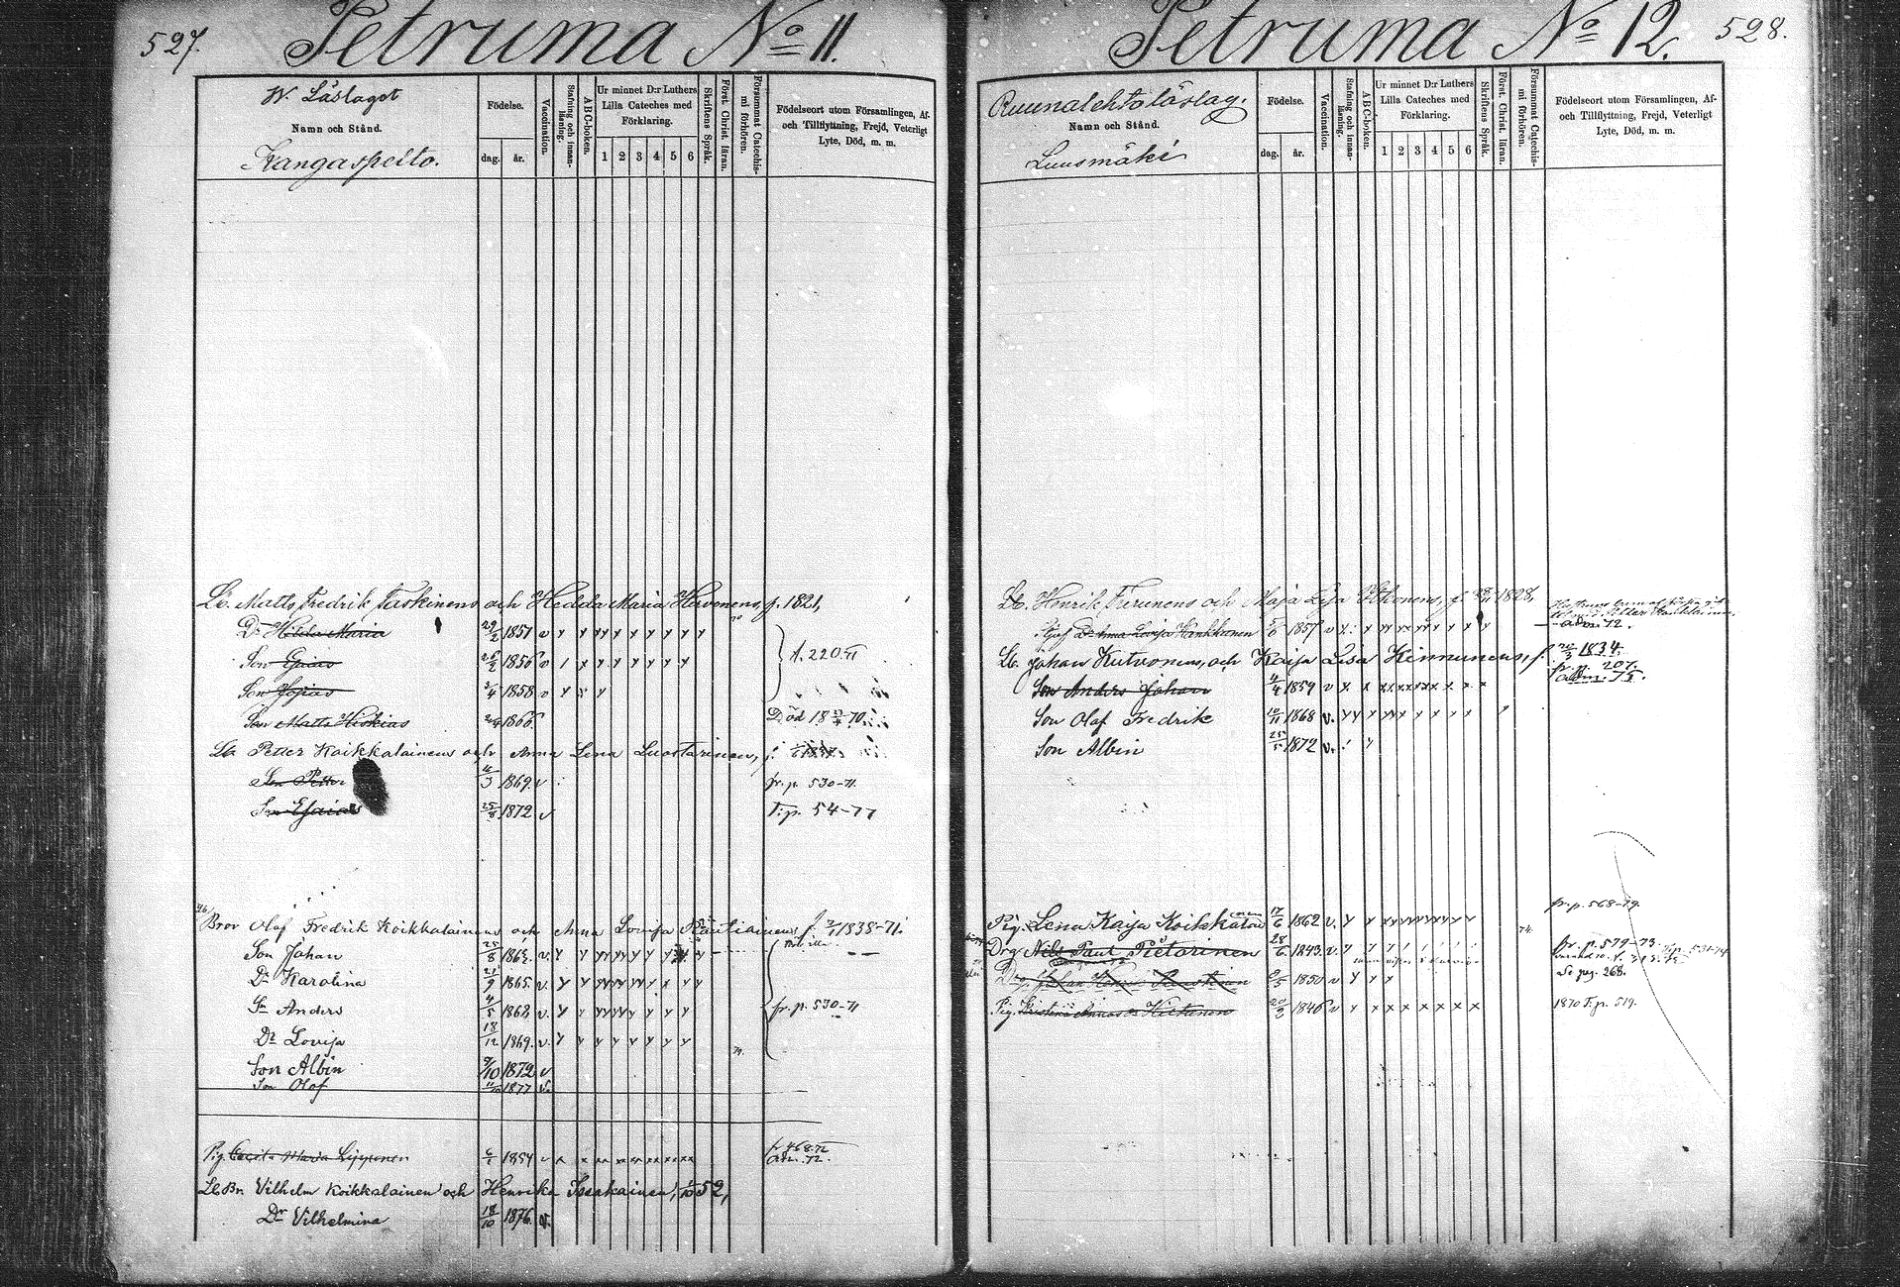 527.
Petruma No 11.
W. Läslaget
Namn och Stånd.
Kangaspelto.
Födelse.
dag. år.
Vaccination.
Stafning och innan-läsning.
ABC-boken.
Ur minnet D:r Luthers
Lilla Cateches med
Förklaring.
1 2 3 4 5 6
Skriftens Språk.
Först. Christ. läran.
Försummat Catechis-mi förhören.
Födelseort utom Församlingen, Af-
och Tillflyttning, Frejd, Veterligt
Lyte, Död, m. m.
Lb. Matts Fredrik Taskinens och Hedda Maria Hirvonens, f. 1821,
Dr Hedda Maria 29/2 1851 v
Son Epias 1856 v
Son Josias 3/4 1858 v
t. 220-71
Son Matts Hiskias 1866 Död 18 70.
Lb. Petter Koikkalainens och Anna Lena Luostarinen, f. 1837
Son Petter 1869. v fr. p. 530-71.
Son Esaias 25/8 1872 v T. p. 54-77
Lb. Bror Olof Fredrik Koikkalainens och Anna Lovisa Räntiainens f. 1838-71.
Son Johan 25/8 1863. v.
Dr Karolina 21/9 1865. v.
Sn Anders 4/5 1868 v. fr. p. 530-71
Dr Lovisa 18/12 1869. v.
Son Albin 9/10 1872 v
Son Olof 1877 v.
Pig. Cecilia Maria 1854 v fr. 468-72
Lb Br. Vilhelm Koikkalainen och Henrika Issakainen, 1/10 52,
Dr Vilhelmina 18/10 1876. v.
528.
Petruma No 12.
Ruunalehto läslag.
Namn och Stånd.
Luusmäki
Födelse.
dag. år.
Vaccination.
Stafning och innan-läsning.
ABC-boken.
Ur minnet D:r Luthers
Lilla Cateches med
Förklaring.
1 2 3 4 5 6
Skriftens Språk.
Först. Christ. läran.
Försummat Catechis-mi förhören.
Födelseort utom Församlingen, Af-
och Tillflyttning, Frejd, Veterligt
Lyte, Död, m. m.
Lb. Henrik Turunens och Maja Lisa 1828,
Dr Anna Lovisa Kankkunen 5/6 1857 v adm. 72.
Lb. Johan Kutvonens, och Kaisa Lisa Kinnunens, f. 20/3 1834.
fr. p. 207.
Son Anders Johan 4/4 1859 v adm. 75.
Son Olof Fredrik 10/11 1868 v.
Son Albin 25/5 1872 v.
fr. p. 568-79.
Pig. Lena Kaisa Koikkalain 17/6 1862 v.
Drg Nils Paul Pietarinen 28/6 1843. v. fr. p. 579-73.
Drg. Johan 1850 v Se pag. 268.
Pig. Kristina Hietanen 20/3 1846 v 1870 T. p. 519.